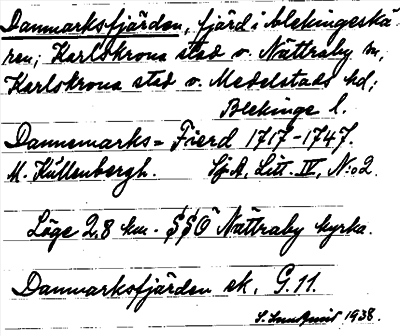 Danmarksfjärden, fjärd i blekingeskä-
ren; Karlskrona stad o. Nättraby sn,
Karlskrona stad o. Medelstads hd;
Blekinge l.
Dannemarks = Fierd 1717-1747.
M. Kullenbergh. SjA, Litt. IV, N:o 2.
Läge 2,8 km. SSO Nättraby kyrka.
Danmarksfjärden ek. G.11.
S. Lundquist 1938.